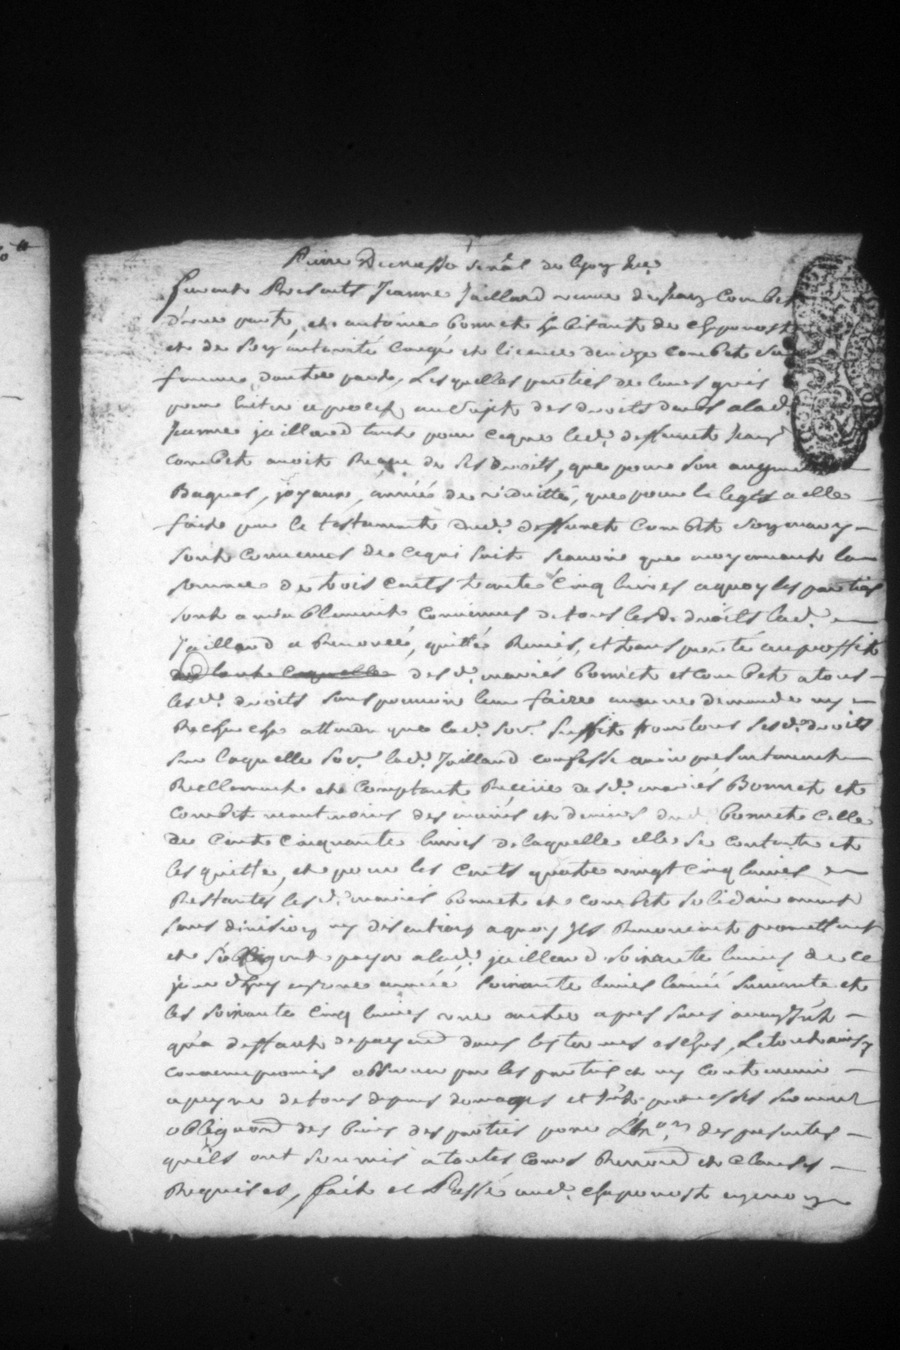 furent Presents Jeanne Jaillard veuve de Jean Combet
d'une part, et antoine bonnet habitant de chponost
et de Son autorité congé et licence combet sa
femme, dautre part, Lesquelles parties de leurs grés
pour éviter a procès au Sujet des droits deubs a lad.
Jeanne jaillard tant pour ceque led. deffunct Jean
combet avoit Reçu de Ses droits, que pour son augment
Bagues, joyaux, année de viduitté, que pour le legs a elle
faict par le testament dud. deffunct Combet Son mary
sont convenus de cequi suit Scavoir que moyennant la
somme de trois cents trente cinq livres a quoy les parties
sont amiablement convenues de tous lesd. droits lad.
Jaillard a Renoncé, quitté Remis, et transporté au proffit
desd. mariés bonnet et combet a tous
lesd. droits sans pouvoir leur faire aucune demande ny
Recherche attendu que lad. So.e Suffit pour tous Sesd. droits
Sur laquelle So.e lad. Jaillard confesse avoir presentement
Reellement et comptant Receue desd. mariés Bonnet et
combet des mains et deniers dud. bonnet celle
de cent cinquante livres de laquelle elle se contente et
les quitte, et pour les cents quatre vingt cinq livres
Restantes lesd. mariés bonnet et combet solidairement
sans division ny discution a quoy Ils Renoncent promettent
et S'obligent payer a lad. jaillard soixante livres de ce
jourdhuy en une année soixante livres lannée suivante et
les soixante cinq livres une autre apres sans interest
qua deffaut de payer dans les termes eschus, Le tout ainsy
convenu promis observer par les parties et ny contrevenir
a peyne de tous depens domages et
obligaon des biens des parties pour des presentes
quels ont soumis a toutes cours Renon et clauses
Requises, fait et Passé aud. chaponost en